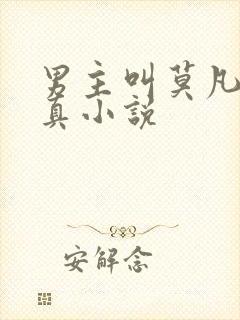 男主叫莫凡
真小说
安解念